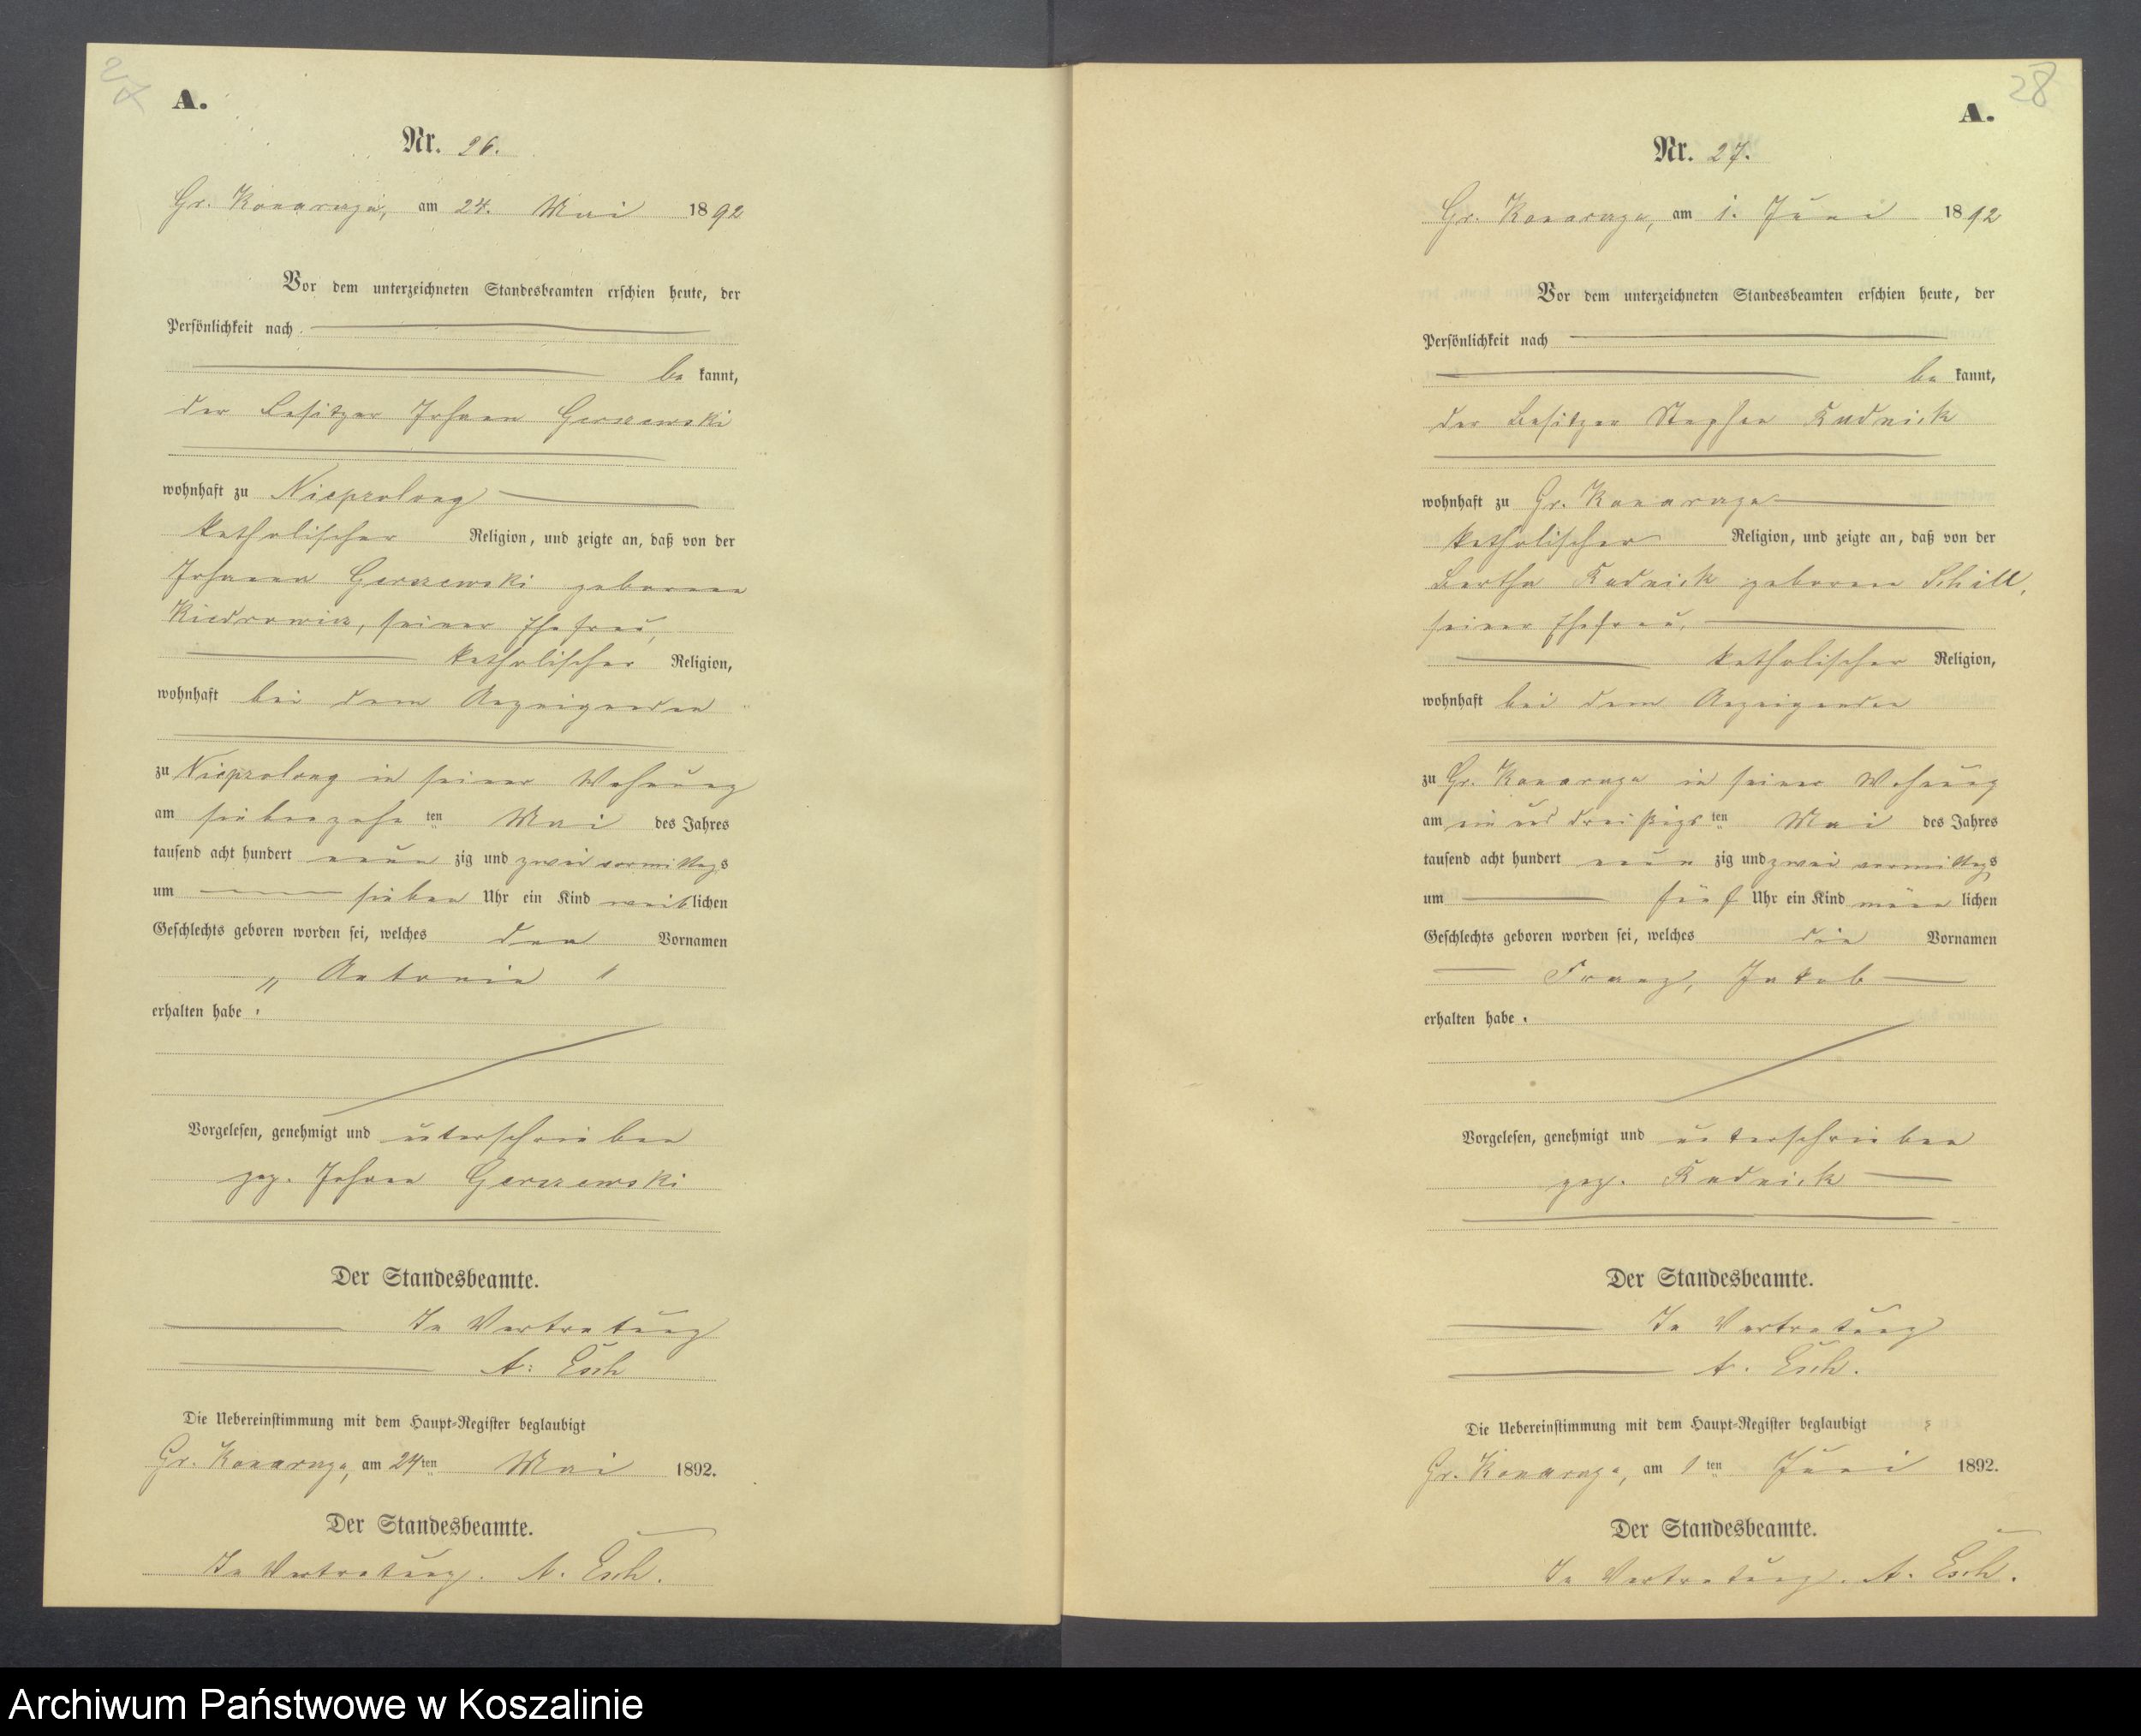 27
A.
Nr. 26.
Gr. Konarczyn, am 24. Mai 1892
Vor dem unterzeichneten Standesbeamten erschien heute, der
Persönlichkeit nach
be kannt,
der Besitzer Johann Gerszewski
wohnhaft zu Nieprzolong
katholischer Religion, und zeigte an, daß von der
Johanna Gerszewski geborene
Kiedrowicz, seiner Ehefrau,
katholischer Religion,
wohnhaft bei dem Anzeigenden
zu Nieprzolong in seiner Wohnung
am siebenzehn ten Mai des Jahres
tausend acht hundert neun zig und zwei vormittags
um sieben Uhr ein Kind weiblichen
Geschlechts geboren worden sei, welches den Vornamen
„ Antonie
erhalten habe.
Vorgelesen, genehmigt und unterschrieben
gez. Johann Gerszewski
Der Standesbeamte.
In Vertretung
A. Esch
Die Uebereinstimmung mit dem Haupt-Register beglaubigt
am 24ten Mai 1892.
Der Standesbeamte.
In Vertretung. A. Esch.
28
A.
Nr. 27.
am 1. Juni 1892
Vor dem unterzeichneten Standesbeamten erschien heute, der
Persönlichkeit nach
be kannt,
der Besitzer Stephan Rudnick
wohnhaft zu Gr.
katholischer Religion, und zeigte an, daß von der
Bertha Rudnick geborene Schill,
seiner Ehefrau,
katholischer Religion,
wohnhaft bei dem Anzeigenden
zu Gr. in seiner Wohnung
am ein und dreißigs ten Mai des Jahres
tausend acht hundert neun zig und zwei vormittags
um fünf Uhr ein Kind männ lichen
Geschlechts geboren worden sei, welches die Vornamen
Franz, Jakob
erhalten habe.
Vorgelesen, genehmigt und unterschrieben
gez. Rudnick
Der Standesbeamte.
In Vertretung
A. Esch.
Die Uebereinstimmung mit dem Haupt-Register beglaubigt
am 1 ten Juni 1892.
Der Standesbeamte.
In Vertretung. A. Esch.
Archiwum Państwowe w Koszalinie